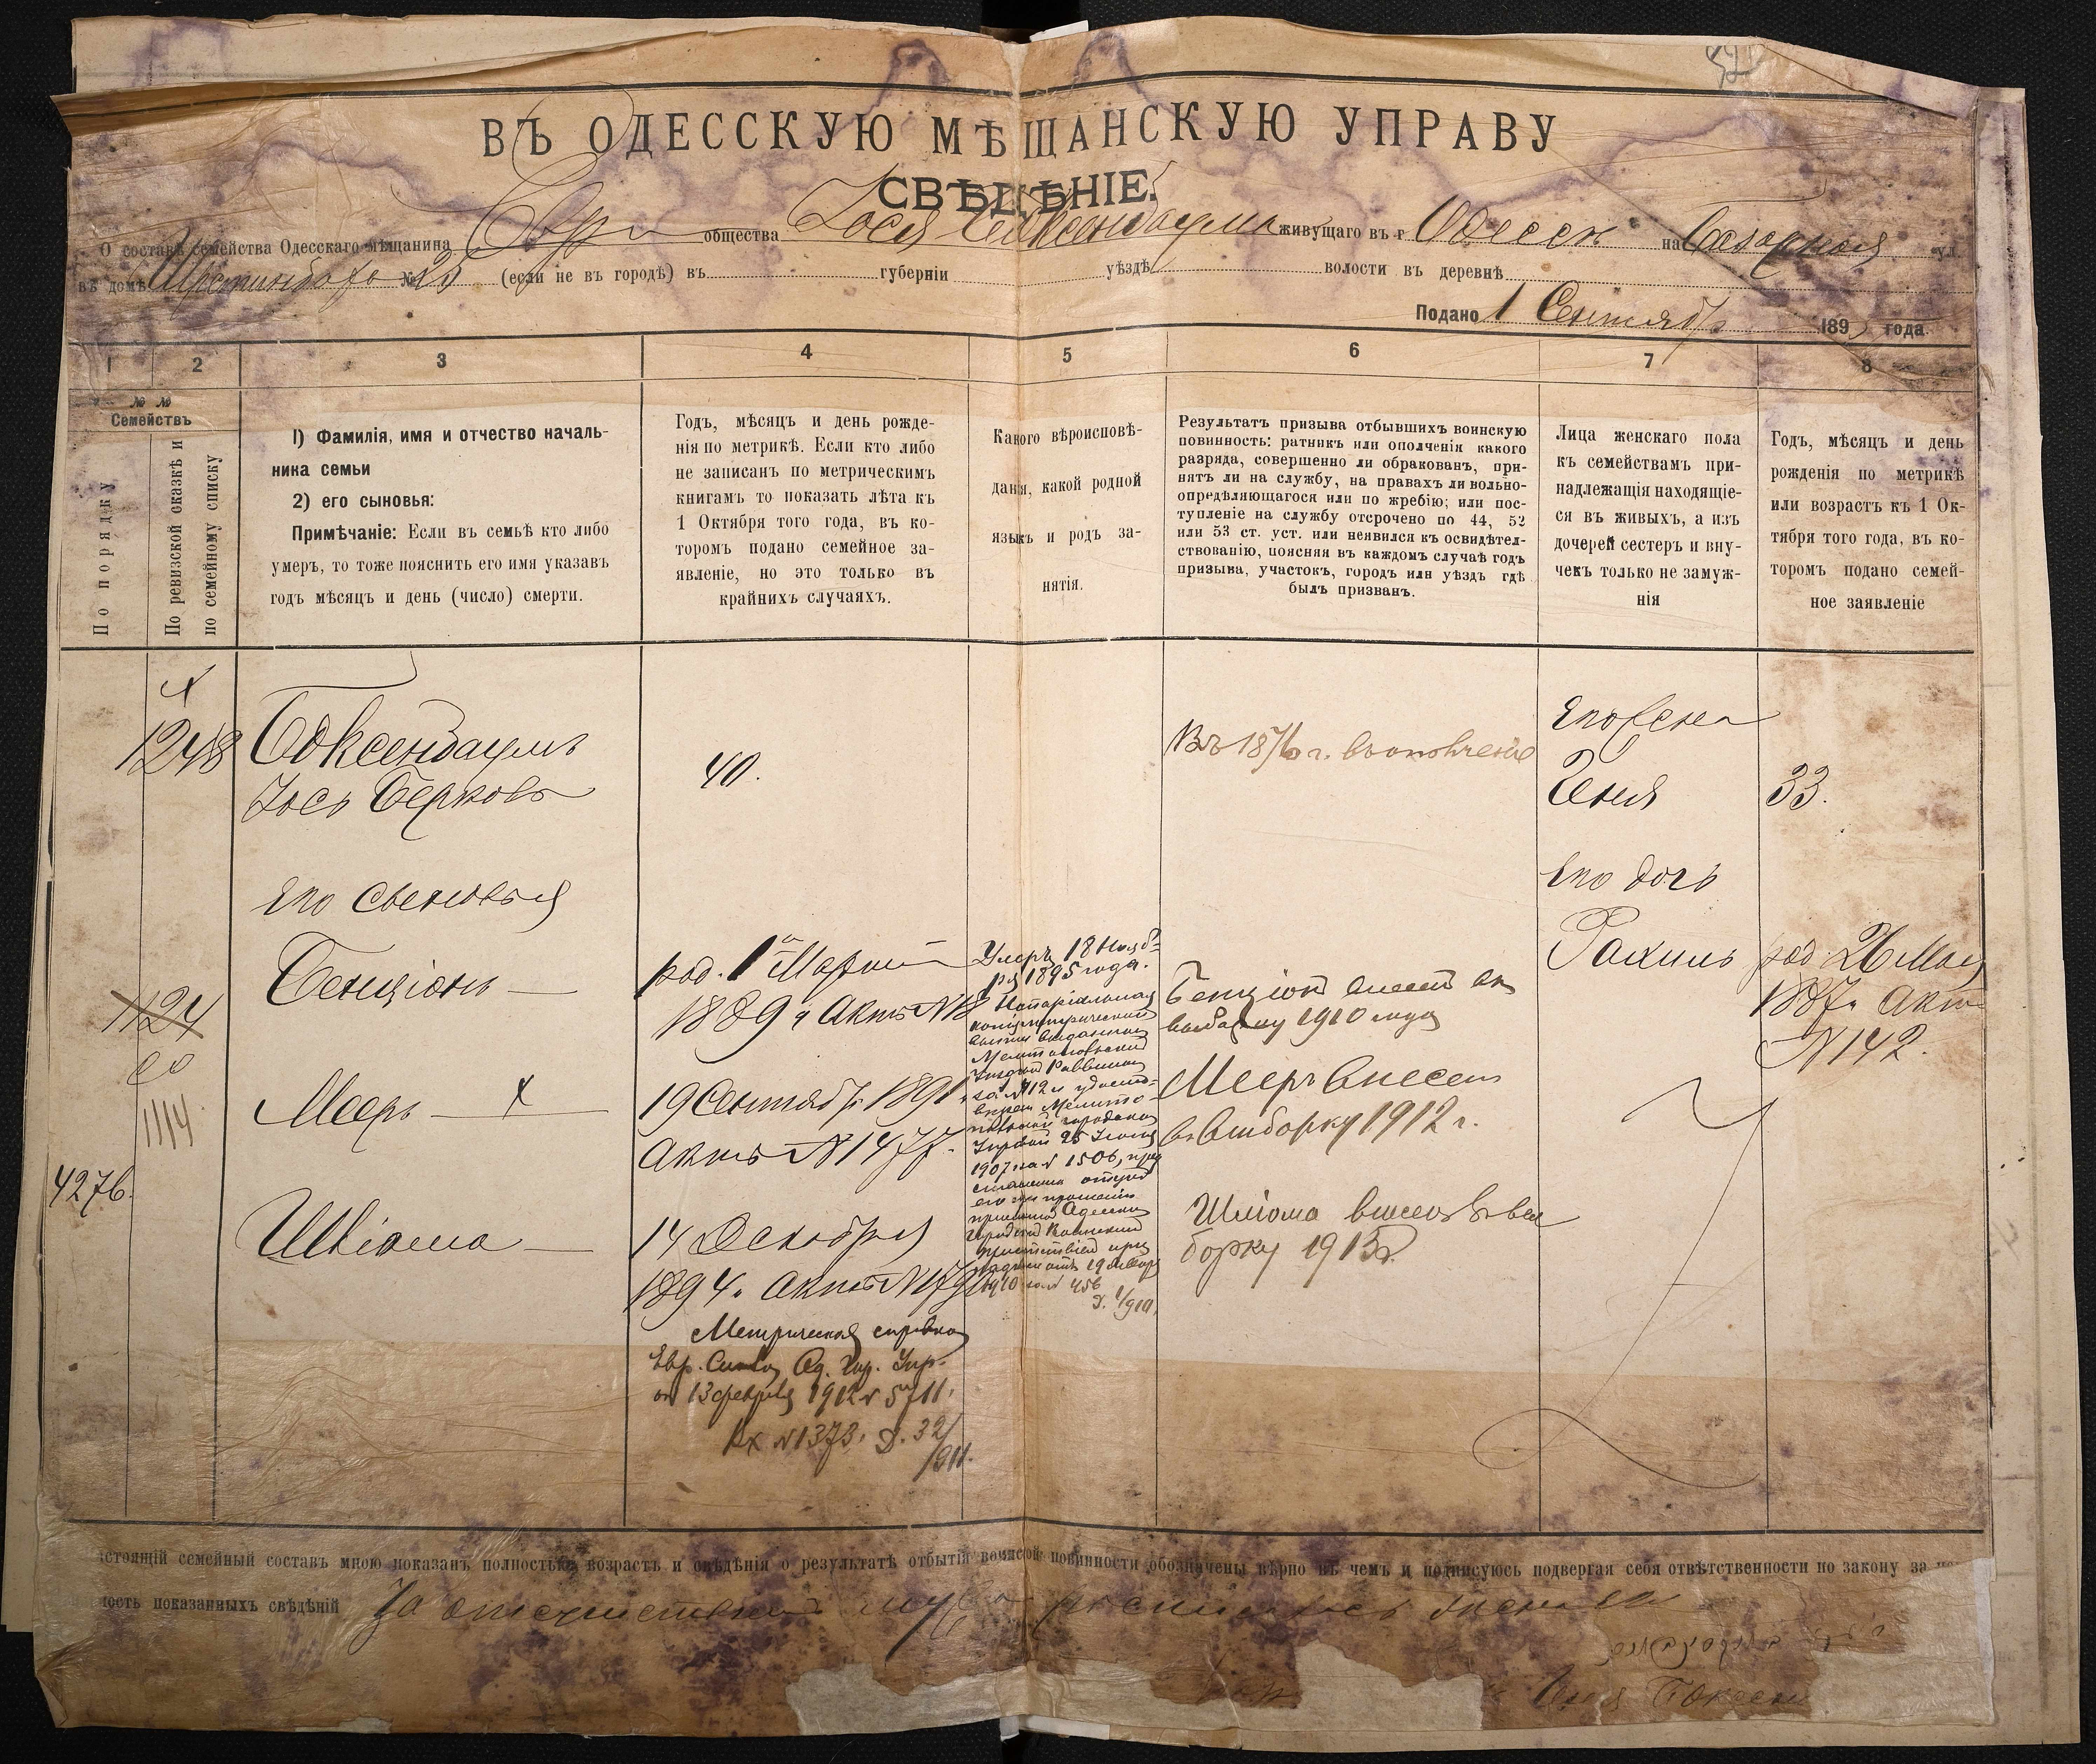 ВЪ ОДЕССКУЮ МѢЩАНСКУЮ УПРАВУ
СВѢДѢНІЕ.
О составѣ семейства Одесскаго мѣщанина Евр общества Йося Боксенбаума живущаго въ г Одессѣ на Базарной ул.
въ домѣ № 23 (если не въ городѣ) въ губерніи уѣздѣ волости въ деревнѣ
Подано 1 Сентября 189 года
1 2 3 4 5 6 7 8
№ №
Семействъ
По порядку
По ревизской сказкѣ и
по семейному списку
1) Фамилія, имя и отчество началь-
ника семьи
2) его сыновья:
Примѣчаніе: Если въ семьѣ кто либо
умеръ, то тоже пояснить его имя указавъ
годъ мѣсяцъ и день (число) смерти.
Годъ, мѣсяцъ и день рожде-
нія по метрикѣ. Если кто либо
не записанъ по метрическимъ
книгамъ то показать лѣта къ
1 Октября того года, въ ко-
торомъ подано семейное за-
явленіе, но это только въ
крайнихъ случаяхъ.
Какого вѣроисповѣ-
данія, какой родной
языкъ и родъ за-
нятія.
Результатъ призыва отбывшихъ воинскую
повинность: ратникъ или ополченія какого
разряда, совершенно ли обракованъ, при-
нятъ ли на службу, на правахъ ли вольно-
опредѣляющагося или по жребію; или пос-
тупленіе на службу отсрочено по 44, 52
или 53 ст. уст. или неявился къ освидѣтел-
ствованію, поясняя въ каждомъ случаѣ годъ
призыва, участокъ, городъ или уѣздъ гдѣ
былъ призванъ.
Лица женскаго пола
къ семействамъ при-
надлежащія находящіе-
ся въ живыхъ, а изъ
дочерей сестеръ и вну-
чекъ только не замуж-
нія
Годъ, мѣсяцъ и день
рожденія по метрикѣ
или возрастъ къ 1 Ок-
тября того года, въ ко-
торомъ подано семей-
ное заявленіе
1248
Боксенбаумъ
Іось Берковъ
40.
Въ 1876 г. въ ополченіе
Его жена
Геня
33.
Его сыновья
Его дочь
Бенціонъ —
род. 1го Марта
1889 г Актъ № 18
Умеръ 18 Нояб-
ря 1895 года.
Нотаріальная
копія метрической
выписи выданной
Мелитопольскимъ
Раввиномъ
за № 12 и удосто-
Мелито-
городской
Управой 25
1907 за № 1506, при
прошеніи
Одесскимъ
городскимъ Воинскимъ
присутствіемъ при
отъ 19 Января
1910 за № 456
Д. 1/910.
Бенціонъ внесенъ въ
выборку 1910 года
Рахиль
род. 26 Мая
1887 г. Актъ
№ 142.
1124
1114
4276.
Мееръ — х —
19 Сентября 1891 г.
Актъ № 1477.
Мееръ внесенъ
въ выборку 1912 г.
Шліома —
14 Декабря
1894 г. Актъ №
Шліома внесенъ въ вы
борку 1915 г.
Метрическая справка
Евр. Од. Гор. Упр.
от 13 февраля 1912 № 5711.
Вх № 1373. Д. 32/
/911.
стоящій семейный составъ мною показанъ полностью, возрастъ и свѣдѣнія о результатѣ отбытія воинской повинности обозначены вѣрно въ чемъ и подписуюсь подвергая себя отвѣтственности по закону за
ность показанныхъ свѣдѣній За отсутствіемъ мужа росписалась жена его
Геня Боксен